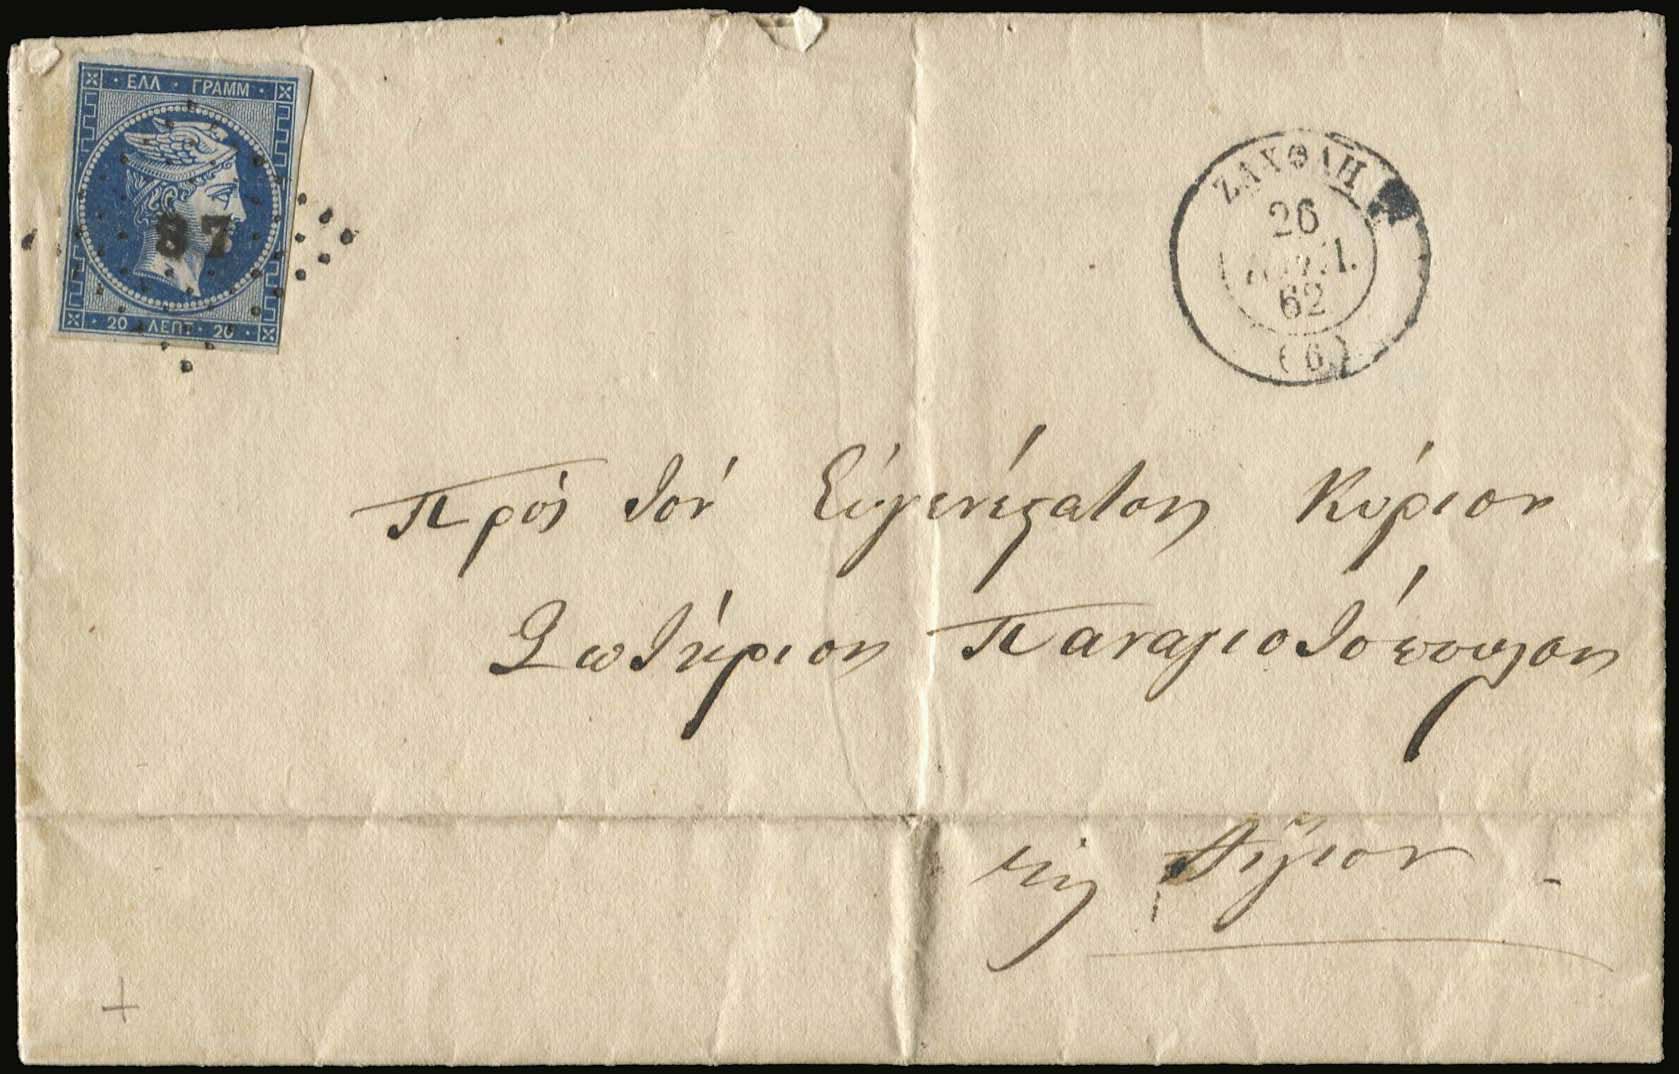 ΕΛΛ · ΓΡΑΜΜ
87
20 ΛΕΠΤ · 20
ΖΑΧΟΛΗ
26
62
(6)
Πρὸς τὸν Εὐγενέστατον Κύριον
Σωτήριον Παναγιοτόπουλον
εἰς Αἴγιον